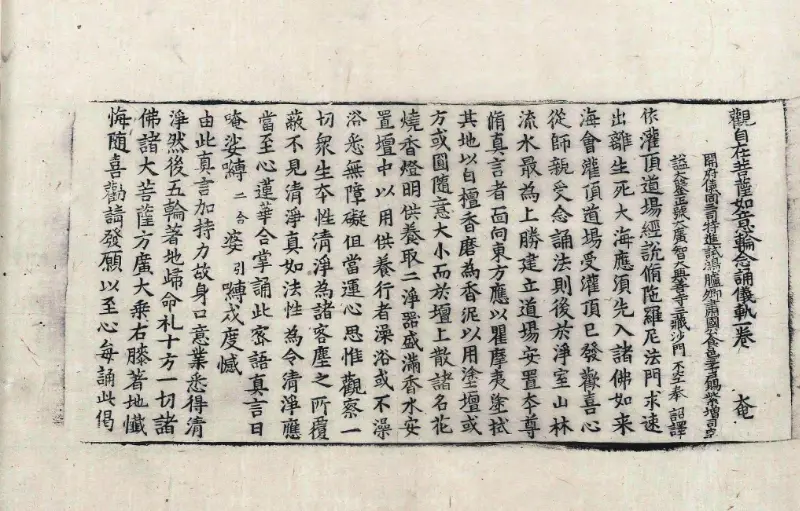 觀自在菩薩如意輪念誦儀軌一卷 奄
開府儀同三司特進試鴻臚卿肅國公食邑三千戶賜紫贈司空
謚大鑒正號大廣智大興善寺三藏沙門 不空奉 詔譯
依灌頂道場經說脩陁羅尼法門求速
出離生死大海應須先入諸佛如來
海會灌頂道場受灌頂已發歡喜心
從師親受念誦法則後於淨室山林
流水最為上勝建立道場安置夲尊
脩真言者面向東方應以瞿摩夷塗拭
其地以白檀香磨為香泥以用塗壇或
方或圓隨意大小而於壇上散諸名花
燒香燈明供養取二淨器盛滿香水安
置壇中以用供養行者澡浴或不澡
浴悉無障礙但當運心思惟觀察一
切衆生夲性清淨為諸客塵之所覆
蔽不見清淨真如法性為令清淨應
當至心蓮華合掌誦此密語真言曰
唵娑嚩 二合 婆 引 嚩戍度憾
由此真言加持力故身口意業悉得清
淨然後五輪著地歸命札十方一切諸
佛諸大菩薩方廣大乘右膝著地懺
悔隨喜勸請發願以至心每誦此偈